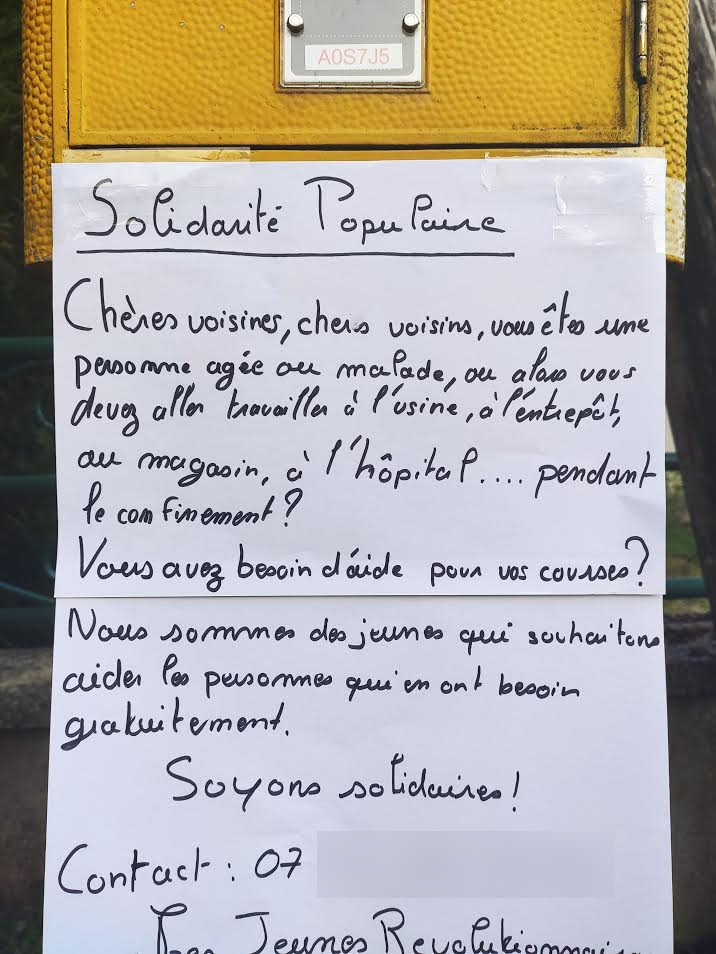 A0S7J5
Solidarité Populaire
Chères voisines, chers voisins, vous êtes une
personne agée ou malade, ou alors vous
devez aller travailler à l'usine, à l'entrepôt,
au magasin, à l'hôpital.... pendant
le confinement?
Vous avez besoin d'aide pour vos courses?
Nous sommes des jeunes qui souhaitons
aider les personnes qui en ont besoin
gratuitement.
Soyons solidaires!
Contact : 07
Les Jeunes Revolutionnaires